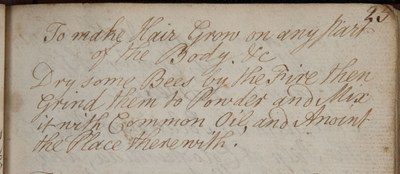 25
To make Hair Grow on any Part
of the Body. &c
Dry some Bees by the Fire then
Grind them to Powder and Mix
it with Common Oil, and Anoint
the Place therewith.